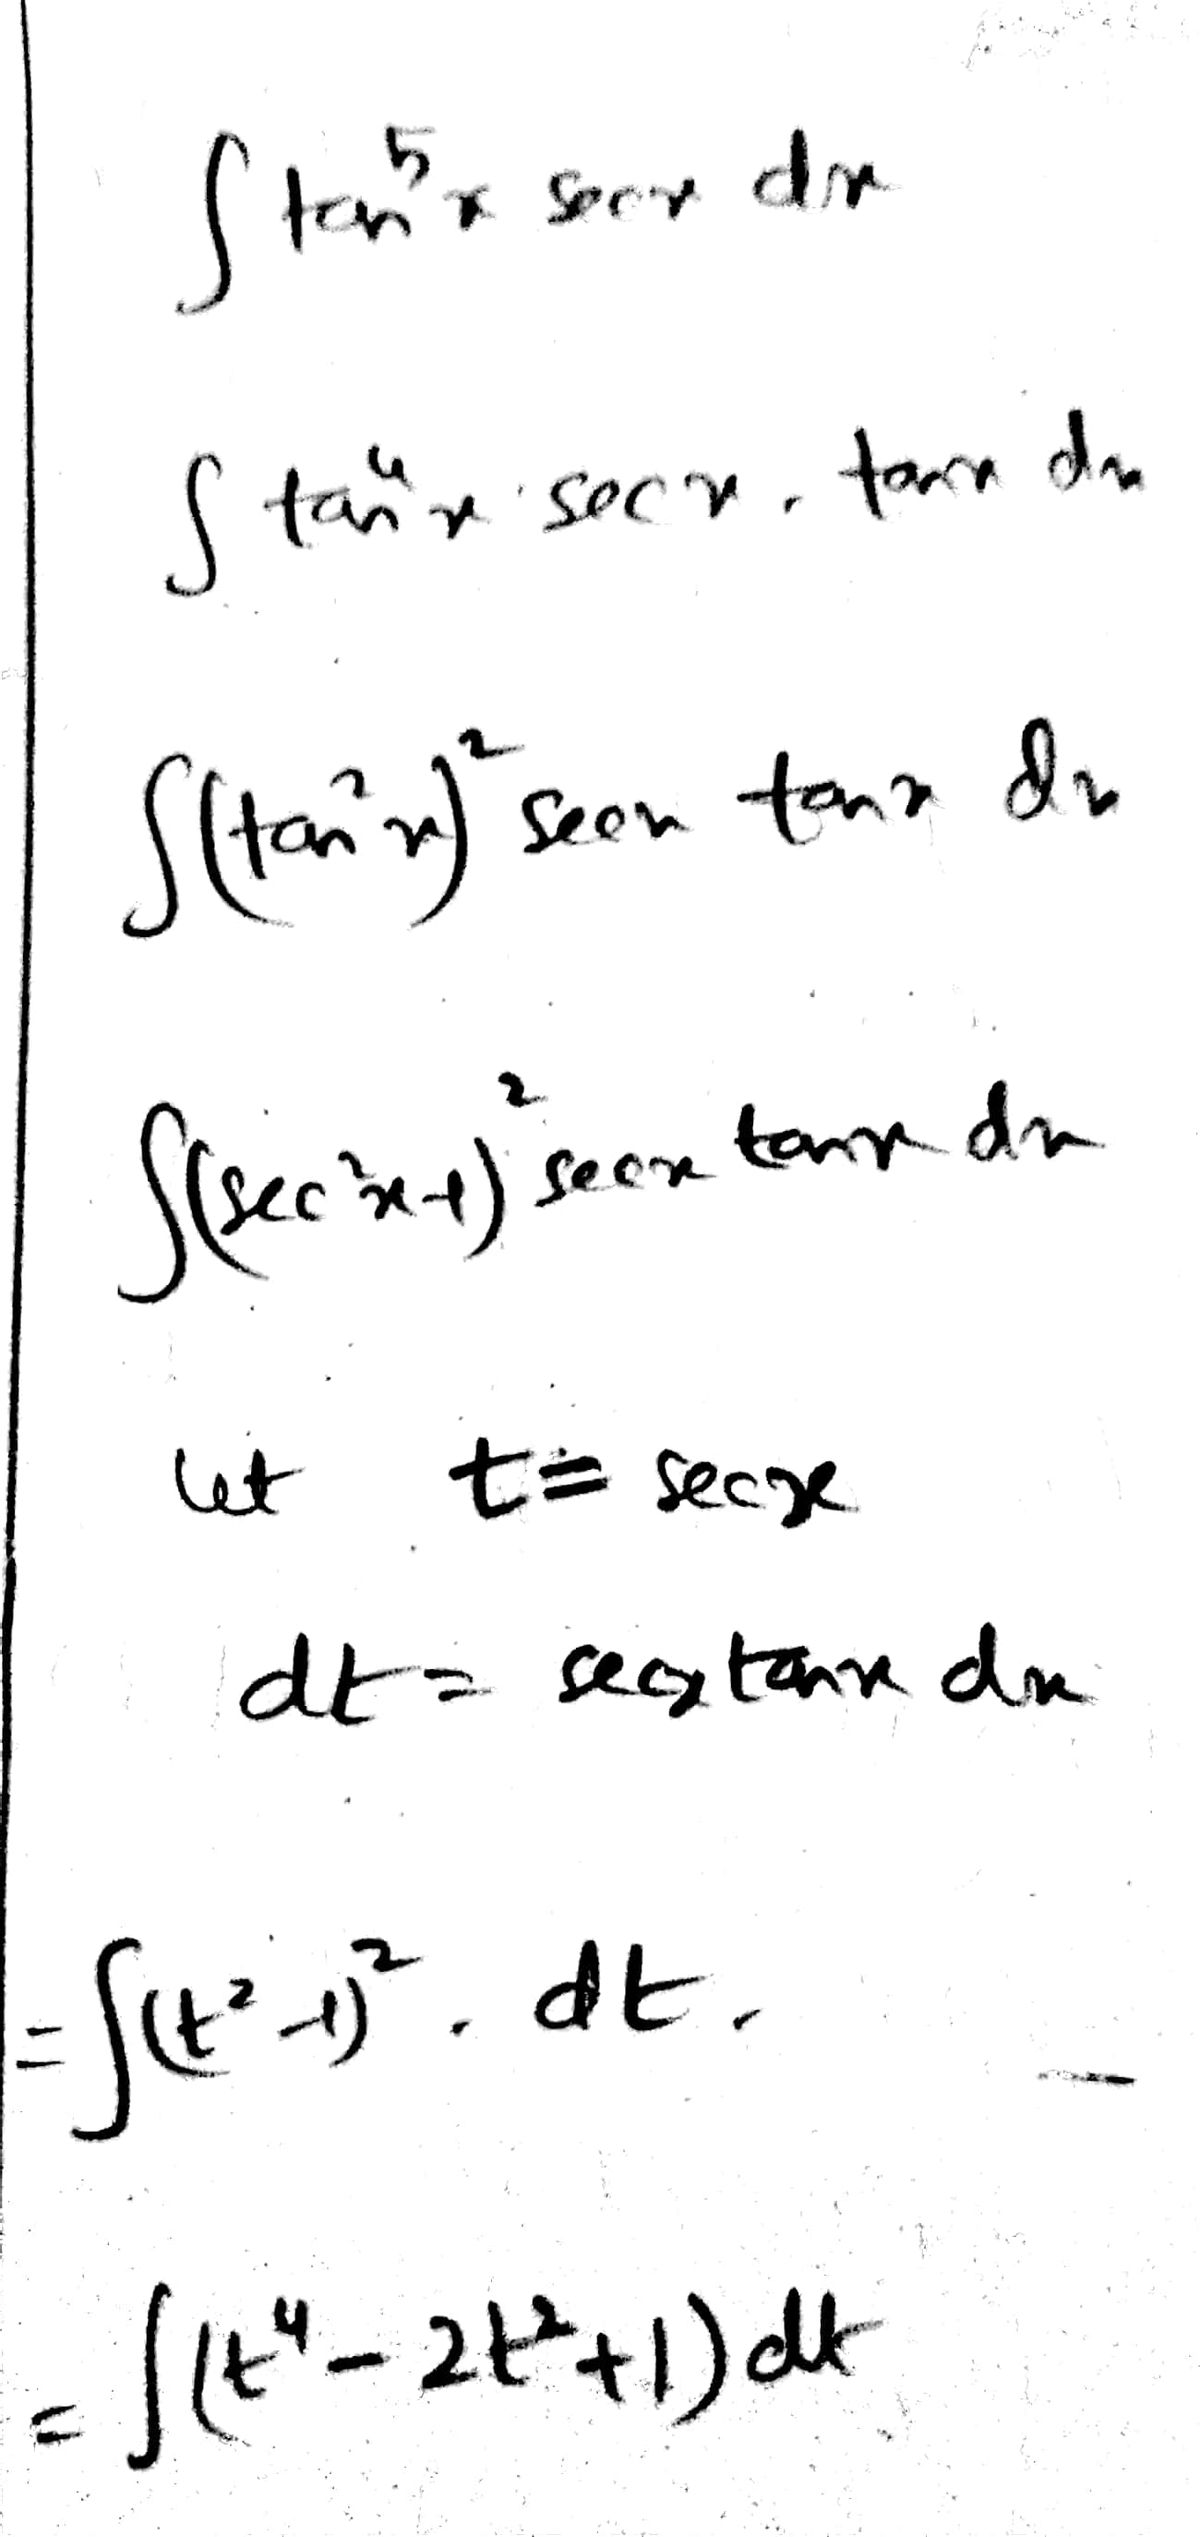 ∫ tan⁵x secx dx
∫ tan⁴x secx . tanx dx
∫(tan²x)² secx tanx dx
∫(sec²x-1)² secx tanx dx
let t = secx
dt = secx tanx dx
= ∫(t²-1)² . dt .
= ∫(t⁴ - 2t² + 1) dt